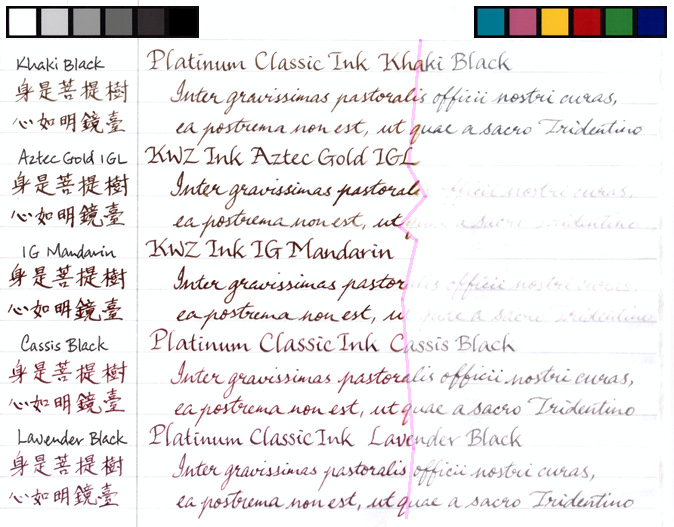 Khaki Black Platinum Classic Ink Khaki Black
身是菩提樹 Inter gravissimas pastoralis officii nostri curas,
心如明鏡臺 ea postrema non est, ut quae a sacro Tridentino
Aztec Gold IGL KWZ Ink Aztec Gold IGL
身是菩提樹 Inter gravissimas pastoralis officii nostri curas,
心如明鏡臺 ea postrema non est, ut quae a sacro Tridentino
IG Mandarin KWZ Ink IG Mandarin
身是菩提樹 Inter gravissimas pastoralis officii nostri curas,
心如明鏡臺 ea postrema non est, ut quae a sacro Tridentino
Cassis Black Platinum Classic Ink Cassis Black
身是菩提樹 Inter gravissimas pastoralis officii nostri curas,
心如明鏡臺 ea postrema non est, ut quae a sacro Tridentino
Lavender Black Platinum Classic Ink Lavender Black
身是菩提樹 Inter gravissimas pastoralis officii nostri curas,
心如明鏡臺 ea postrema non est, ut quae a sacro Tridentino